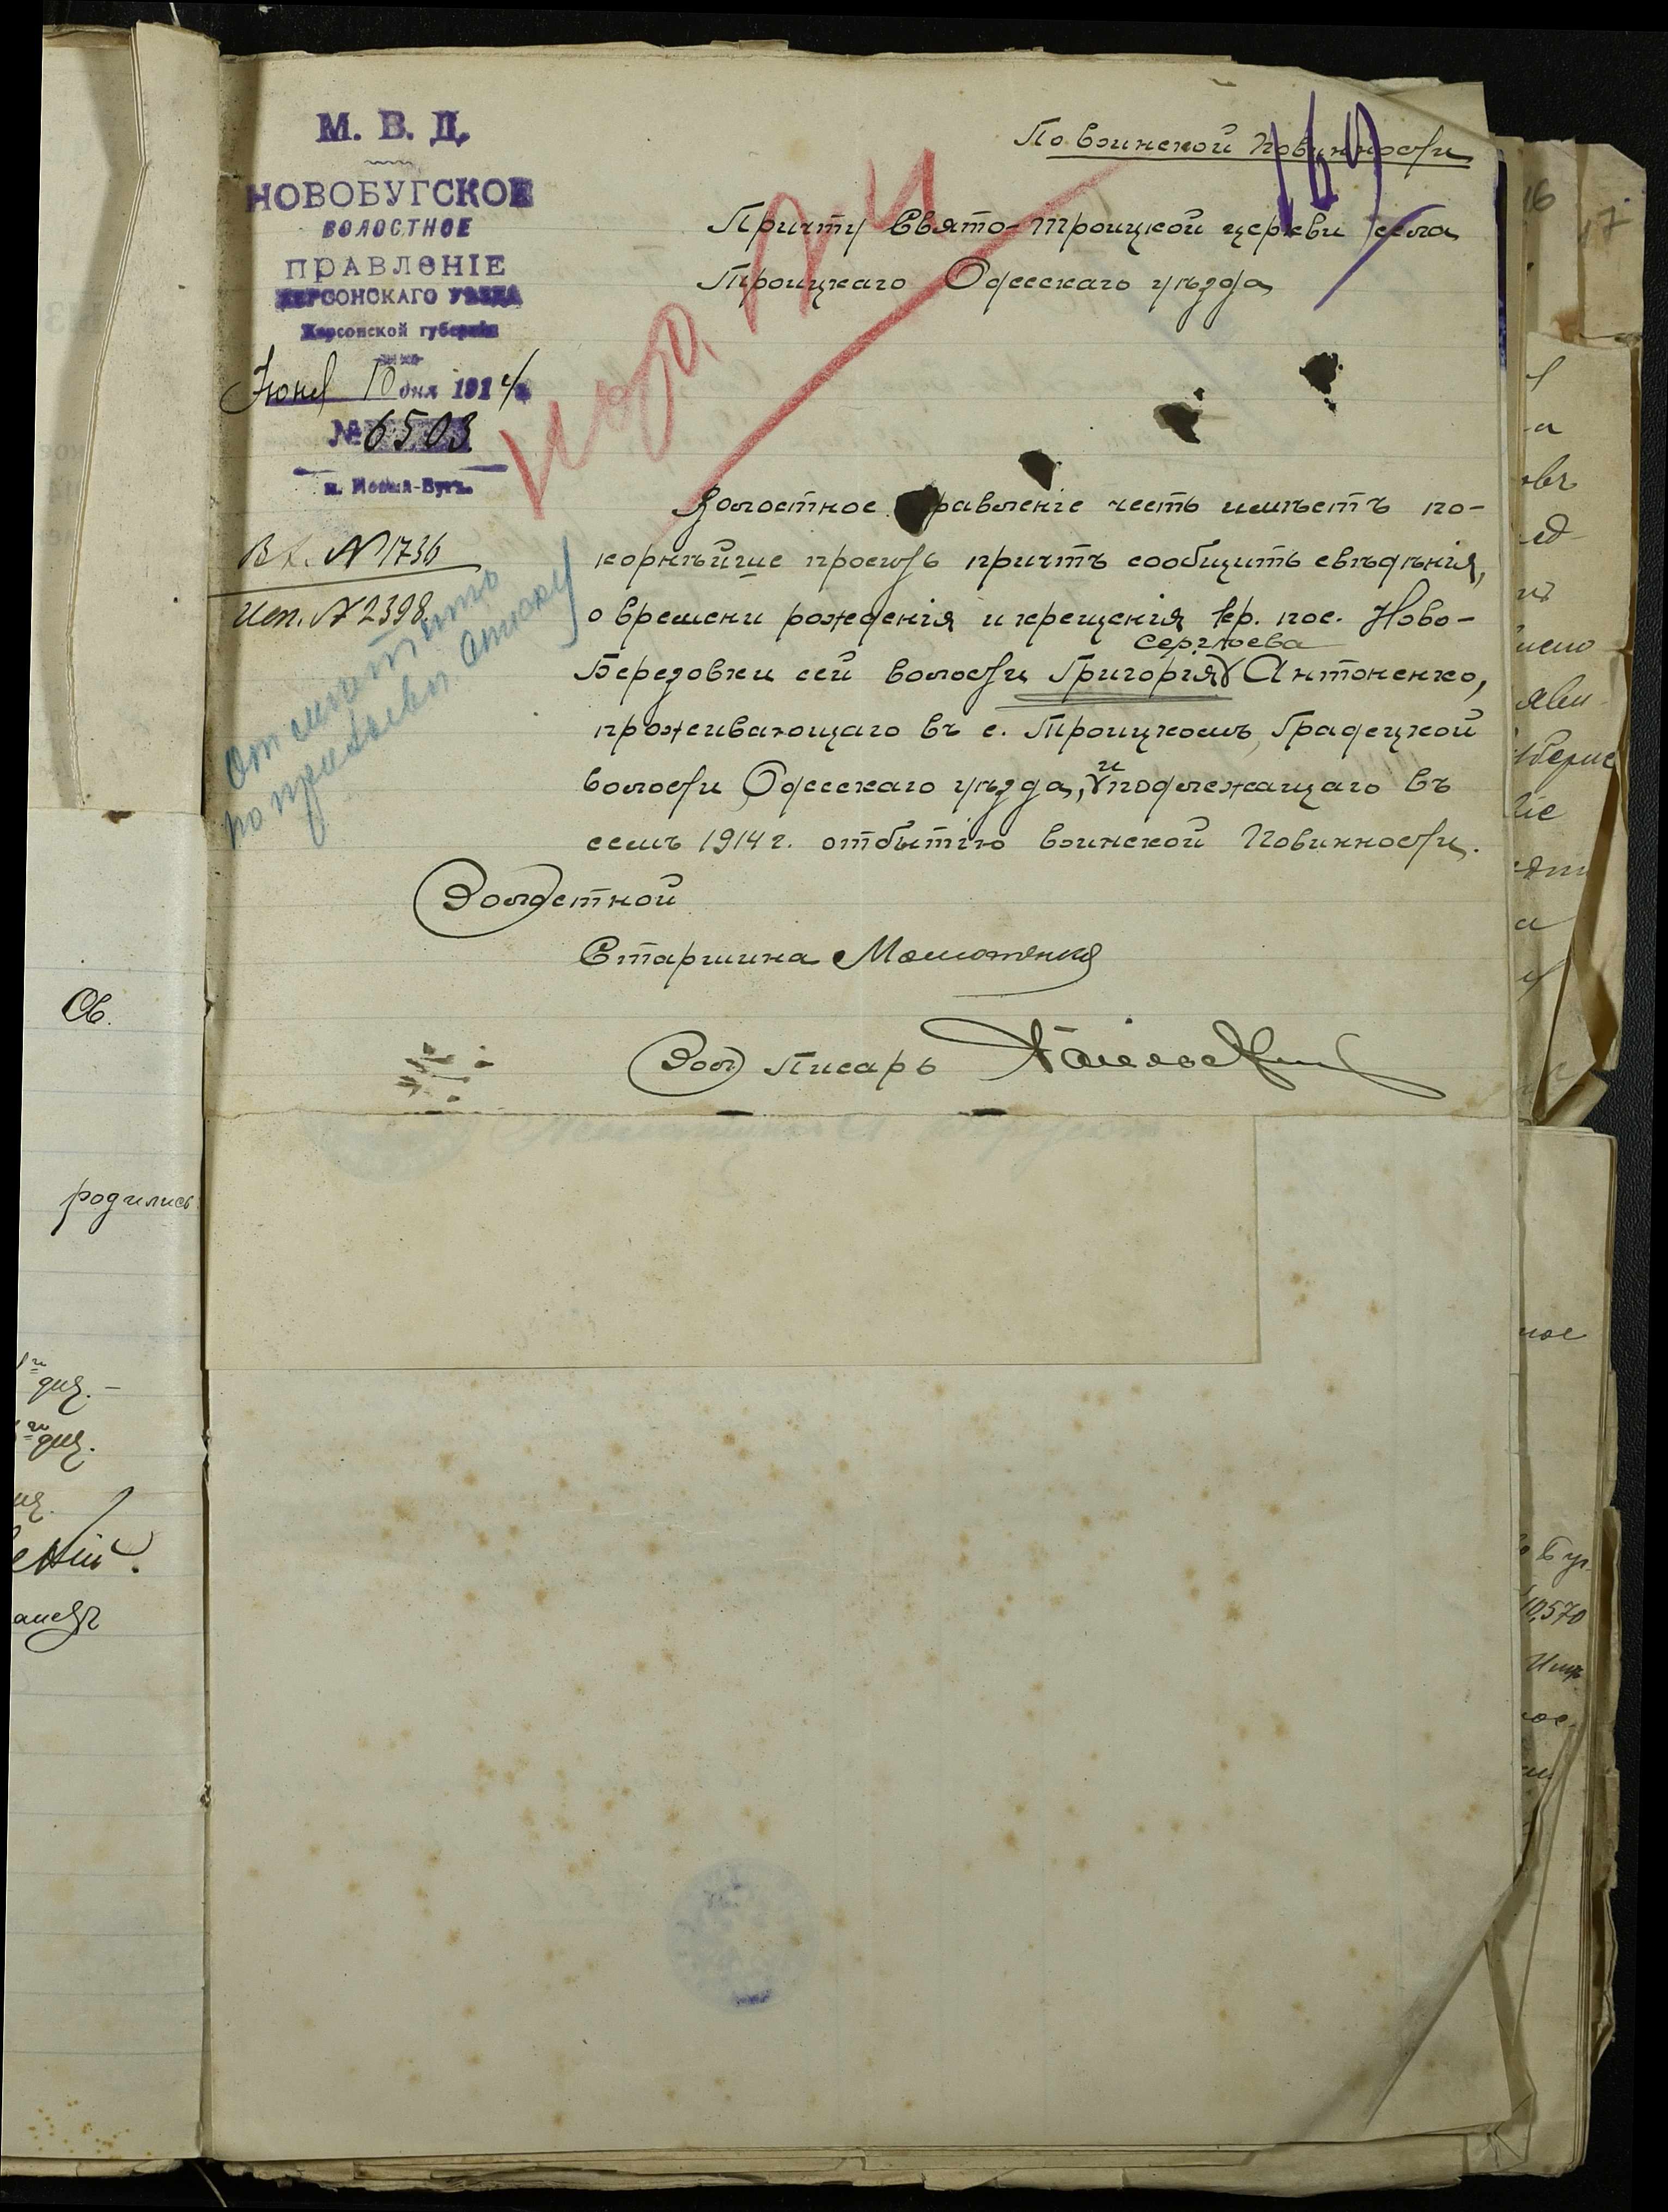 М. В. Д.
НОВОБУГСКОЕ
ВОЛОСТНОЕ
ПРАВЛЕНІЕ
ХЕРСОНСКАГО УѢЗДА
Херсонской губерніи
Іюня 10 дня 1914
№ 6503
м. Новый-Бугъ.
Вх. № 1736
Исп. № 2398
Отмѣтить
по призывн. списку
По воинской повинности
169
Причту Свято-Троицкой церкви села
Троицкаго Одесскаго уѣзда
Волостное Правленіе честь имѣетъ по-
корнѣйше просить причтъ сообщить свѣдѣнія,
о времени рожденія и крещенія кр. пос. Ново-
Сергѣева
Березовки сей волости Григорія Антоненко,
проживающаго въ с. Троицкомъ, Градецкой
волости Одесскаго уѣзда, и подлежащаго въ
семъ 1914 г. отбытію воинской повинности.
Волостной
Старшина
Вол Писарь
Св.
родились
дня.
дня.
16
17
ное
10,570